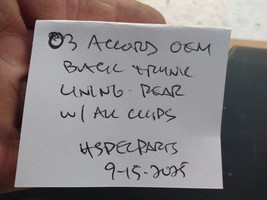 03 ACCORD OEM
BACK TRUNK
LINING REAR
W/ ALL CLIPS
HSPECPARTS
9-15-2025